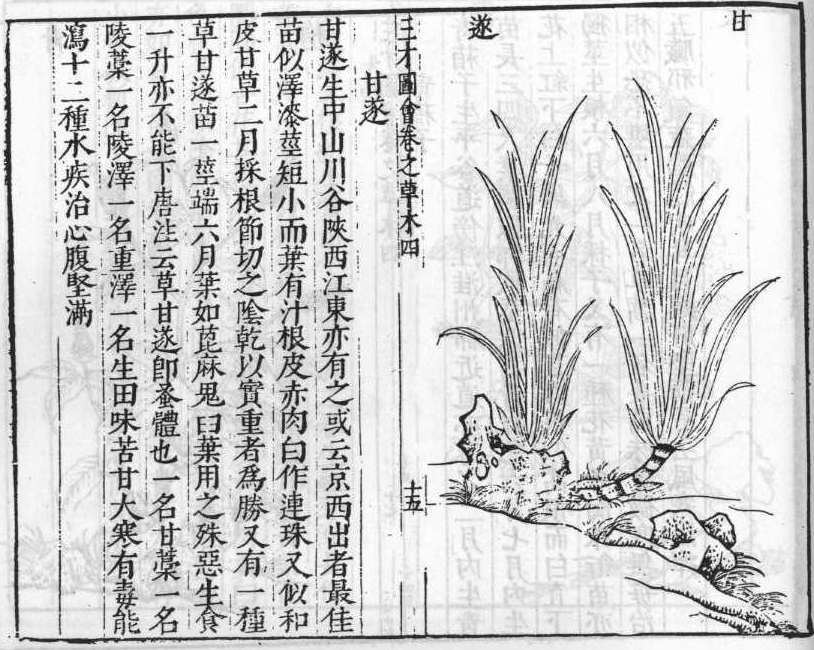 甘
遂
三才圖會卷之草木四
十五
甘遂
甘遂生中山川谷陝西江東亦有之或云京西出者最佳
苗似澤漆莖短小而葉有汁根皮赤肉白作連珠又似和
皮甘草二月採根節切之陰乾以實重者爲勝又有一種
草甘遂苗一莖端六月葉如蓖麻鬼臼葉用之殊惡生食
一升亦不能下唐注云草甘遂卽蚤體也一名甘藁一名
陵藁一名陵澤一名重澤一名生田味苦甘大寒有毒能
瀉十二種水疾治心腹堅滿